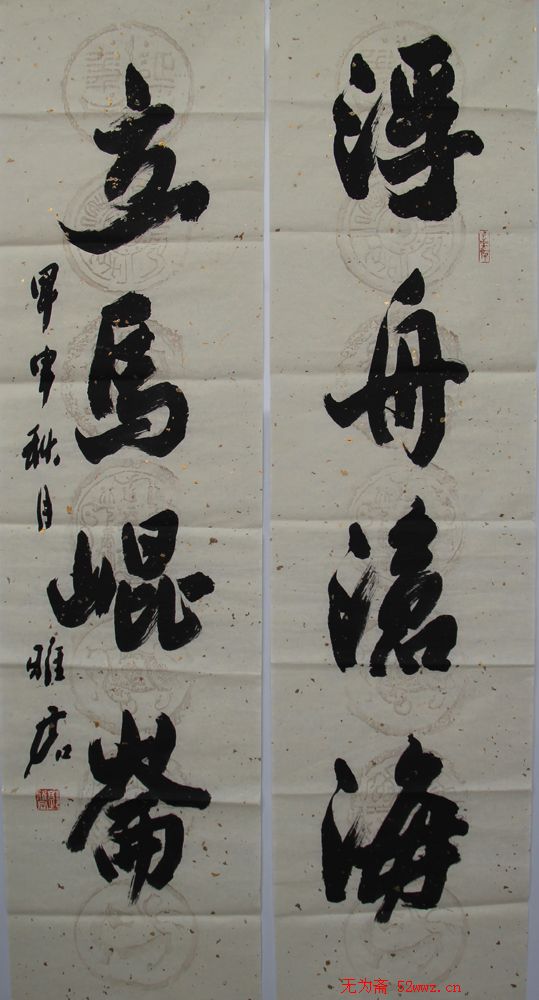 浮舟滄海
立馬崐崙
甲申秋月
雅君
无为斋 52wwz.cn